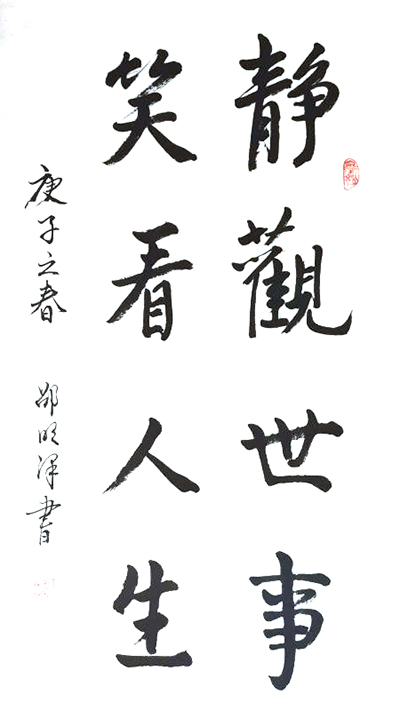 静觀世事
笑看人生
庚子之春 邵明泽書